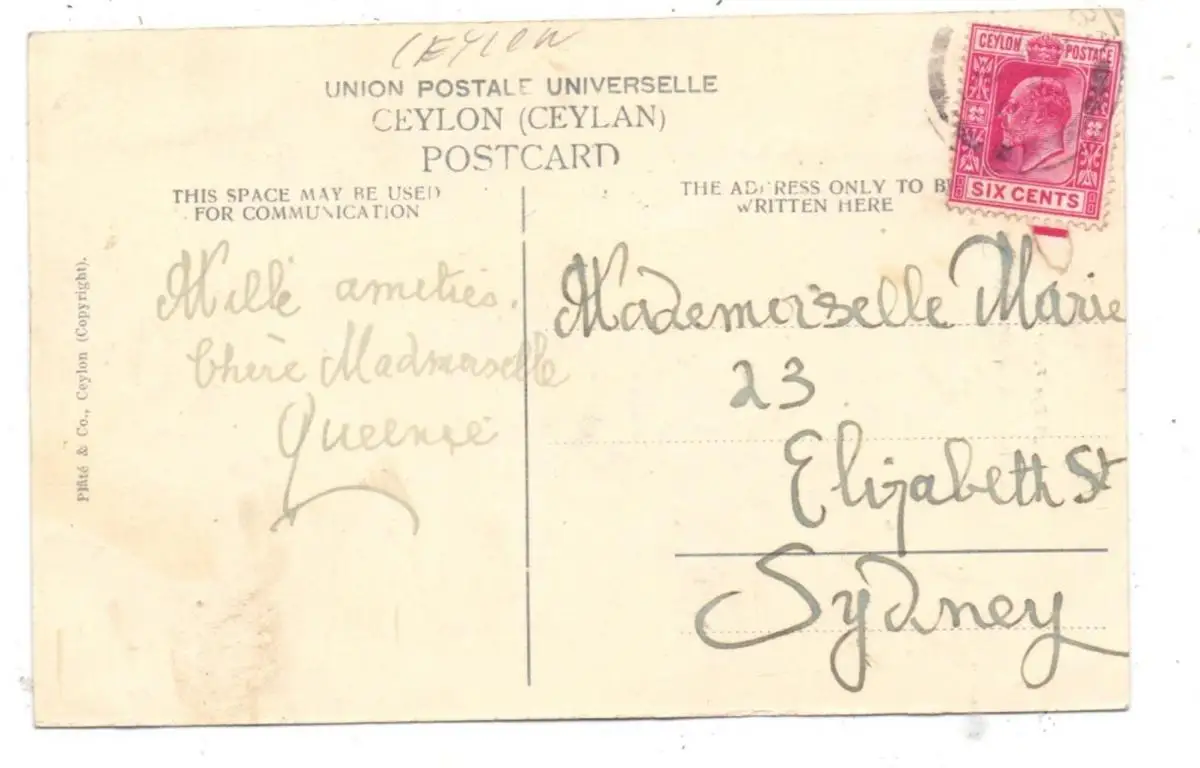 CEYLON
UNION POSTALE UNIVERSELLE
CEYLON (CEYLAN)
POSTCARD
CEYLON POSTAGE
SIX CENTS
THIS SPACE MAY BE USED
FOR COMMUNICATION
THE ADDRESS ONLY TO BE
WRITTEN HERE
Mille amitiés
Chère Madmerselle
Queenie
Mademoiselle Marie
23
Elizabeth St
Sydney
Plâté & Co., Ceylon (Copyright).